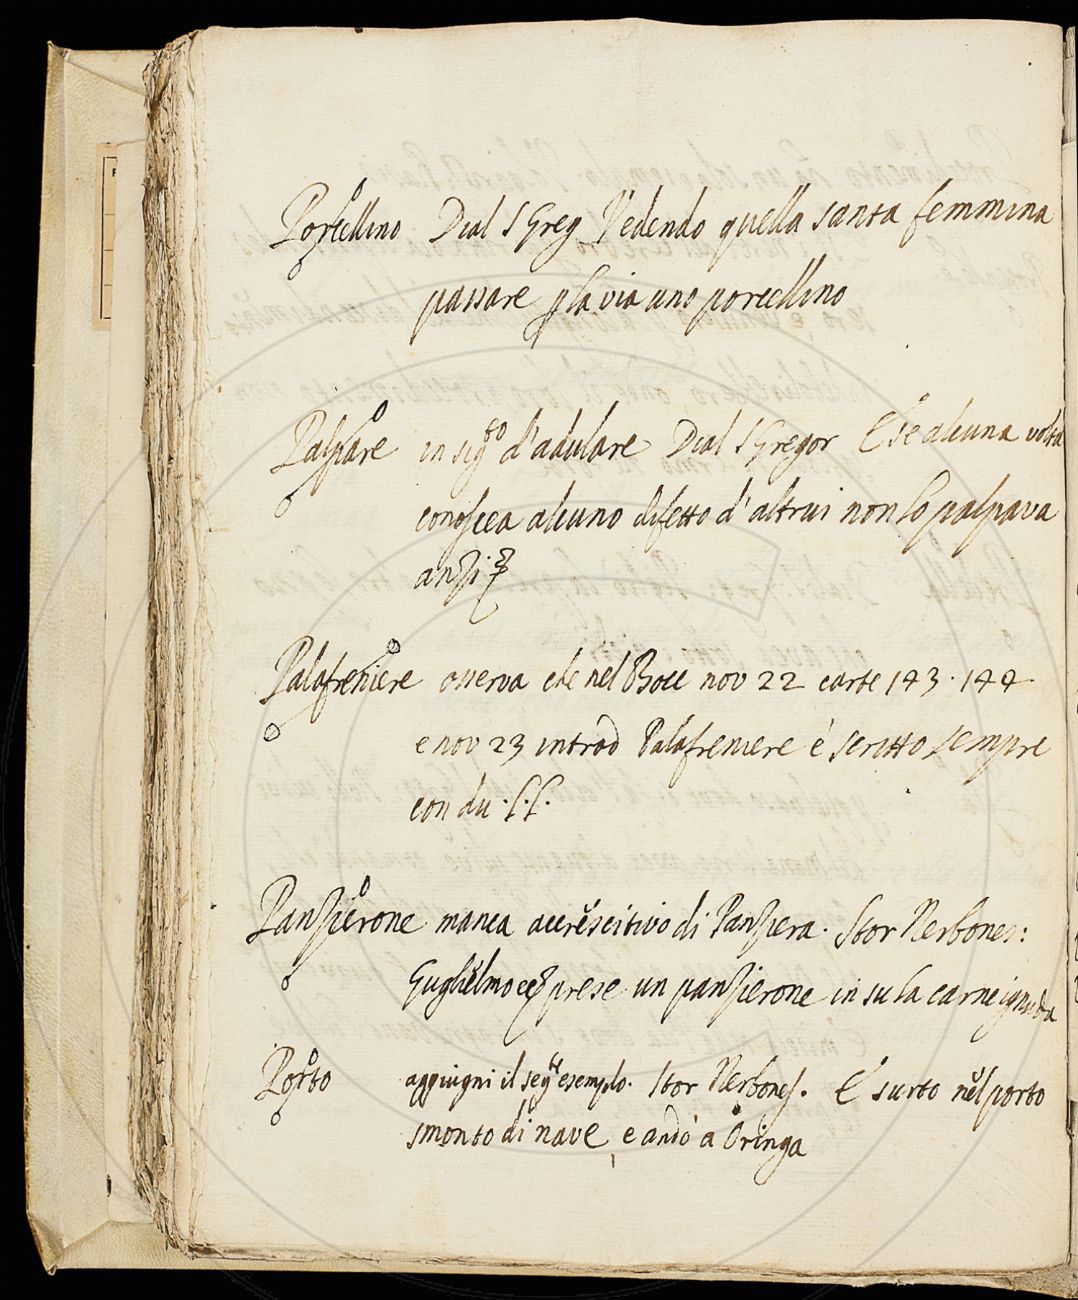 Porcellino Dial S Greg Vedendo quella santa femmina
passare p la via uno porcellino
Palpare in sig.to d'adulare Dial S Gregor E se alcuna volta
conoscea alcuno difetto d'altrui non lo palpava
anzi
Palafreniere osserva che nel Bocc nov 22 carte 143. 144
e nov 23 introd Palafreniere è scritto sempre
con du .f.f.
Panzierone manca accrescitivo di Panziera. Stor Nerbones:
Guglielmo prese un panzierone in su la carne ignuda
Porto aggiugni il seg.te esemplo. Stor Nerbones. E surto nel porto
smontò di nave, e andò a Oringa